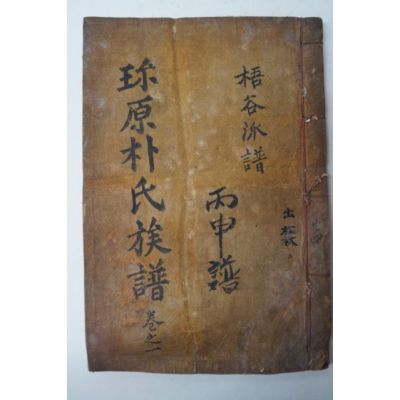 出松
梧谷派譜
丙申譜
珎原朴氏族譜
卷之一